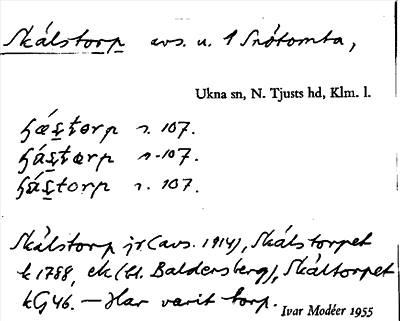 Skálstorp avs. u. 1 Snötomta,
Ukna sn, N. Tjusts hd, Klm. l.
torp s. 107.
torp s. 107.
torp s. 107.
Skålstorp jr (avs. 1914), Skålstorpet
k 1788, ek (bl. Baldersberg), Skåltorpet
kG 46. — Har varit torp.
Ivar Modéer 1955